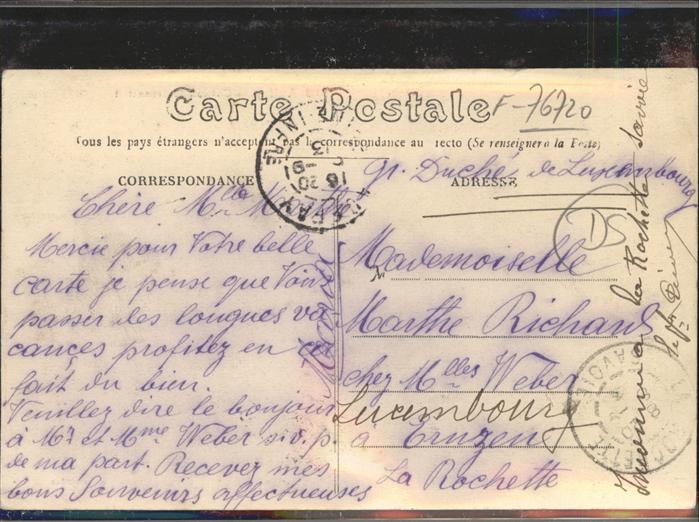 Carte Postale
F-76720
Tous les pays étrangers n'acceptent pas la correspondance au recto (Se renseigner à la Poste)
CORRESPONDANCE
ADRESSE
Gr. Duché de Luxembourg
Chère Mlle
Mercie pour Votre belle
carte je pense que Vous
passer des longues va
cances profitez en ça
fait du bien.
Veuillez dire le bonjour
à Mr et Mme Weber s.v.p
de ma part. Recevez mes
bons Souvenirs affectueuses
DS
Mademoiselle
M
Marthe Richard
chez Mlles Weber
Luxembourg
à Cruzen
La Rochette
Inconnu à la Rochette Savoie